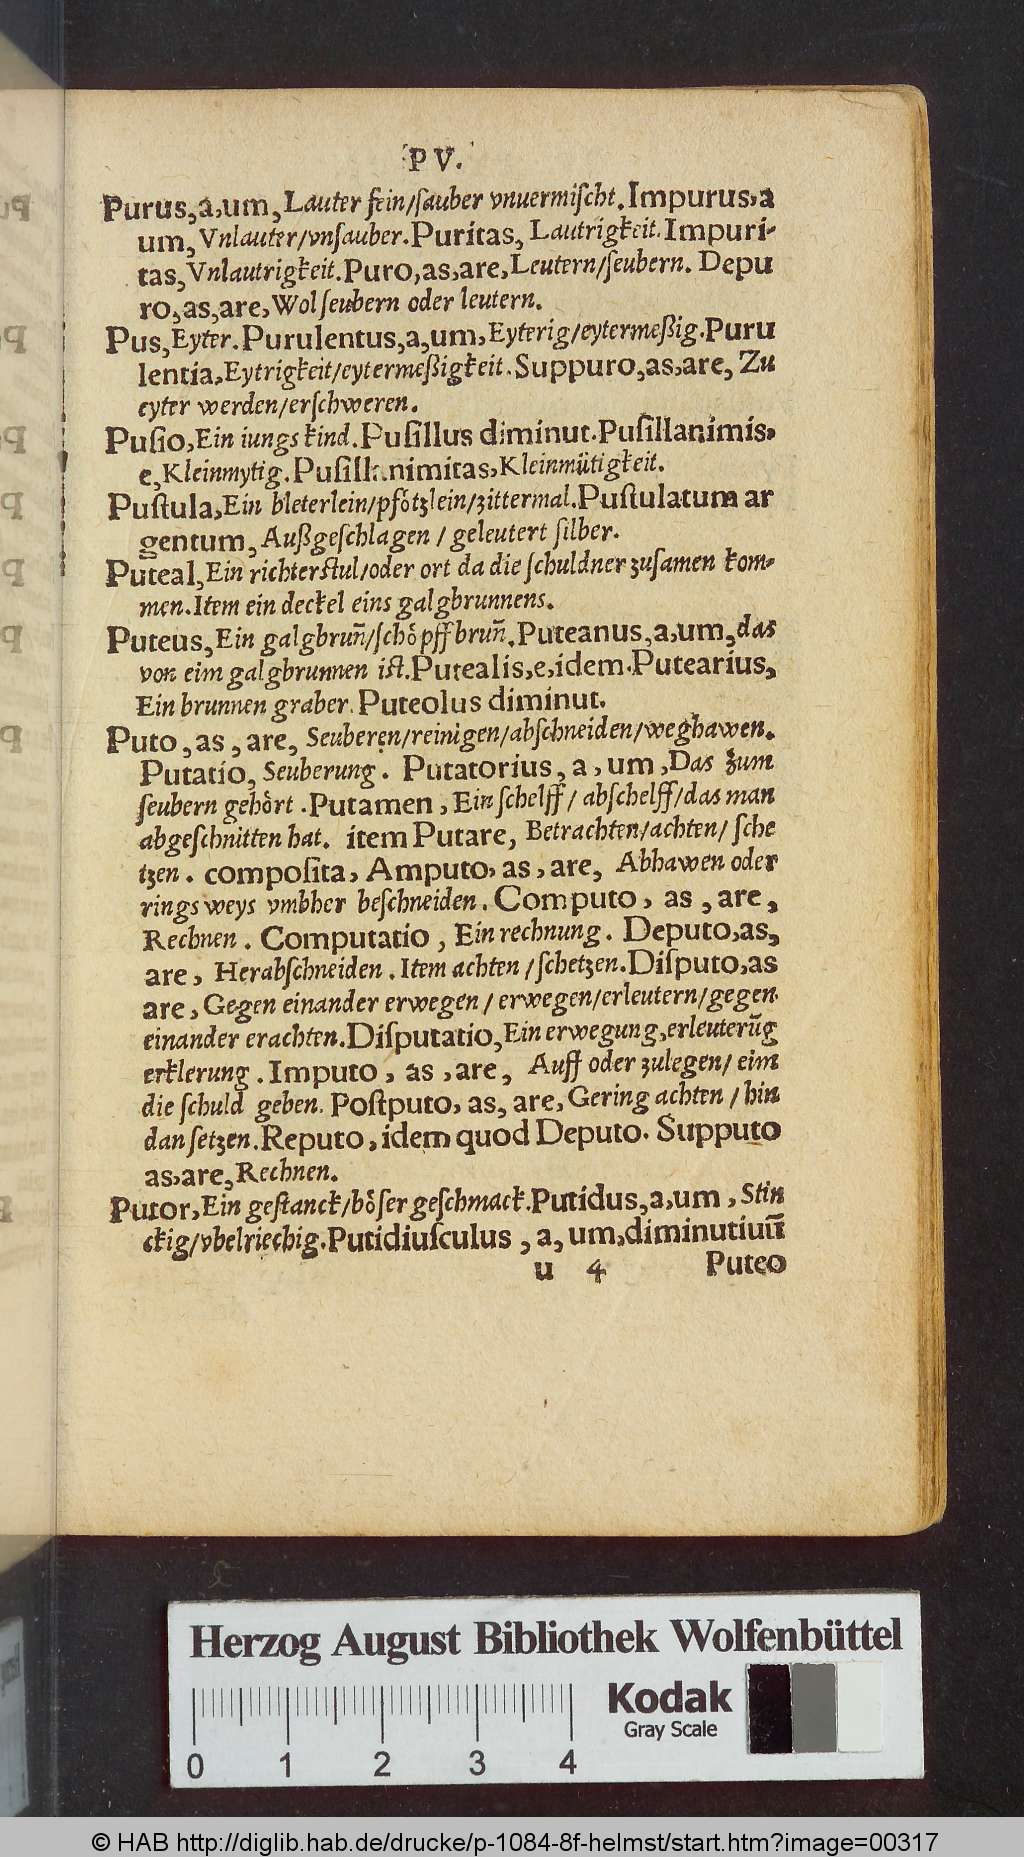 PV.
Purus, a, um, Lauter fein/ſauber vnuermiſcht. Impurus, a
um, Vnlauter/vnſauber. Puritas, Lautrigkeit. Impuri-
tas, Vnlautrigkeit. Puro, as, are, Leutern/ſeubern. Depu
ro, as, are, Wol ſeubern oder leutern.
Pus, Eyter. Purulentus, a, um, Eyterig/eytermeßig. Puru
lentia, Eytrigkeit/eytermeßigkeit. Suppuro, as, are, Zu
eyter werden/erſchweren.
Puſio, Ein iungs kind. Puſillus diminut. Puſillanimis,
e, Kleinmytig. Puſillanimitas, Kleinmütigkeit.
Puſtula, Ein bleterlein/pfötzlein/zittermal. Puſtulatum ar
gentum, Außgeſchlagen / geleutert ſilber.
Puteal, Ein richterſtul/oder ort da die ſchuldner zuſamen kom-
men. Item ein deckel eins galgbrunnens.
Puteus, Ein galgbruñ/ſchöpffbruñ. Puteanus, a, um, das
von eim galgbrunnen iſt. Putealis, e, idem. Putearius,
Ein brunnen graber. Puteolus diminut.
Puto, as, are, Seuberen/reinigen/abſchneiden/weghawen.
Putatio, Seuberung. Putatorius, a, um, Das zum
ſeubern gehört. Putamen, Ein ſchelff/ abſchelff/das man
abgeſchnitten hat. item Putare, Betrachten/achten/ ſche
tzen. compoſita, Amputo, as, are, Abhawen oder
rings weys vmbher beſchneiden. Computo, as, are,
Rechnen. Computatio, Ein rechnung. Deputo, as,
are, Herabſchneiden. Item achten/ſchetzen. Diſputo, as
are, Gegen einander erwegen/ erwegen/erleutern/gegen
einander erachten. Diſputatio, Ein erwegung, erleuterūg
erklerung. Imputo, as, are, Auff oder zulegen/ eim
die ſchuld geben. Poſtputo, as, are, Gering achten / hin
dan ſetzen. Reputo, idem quod Deputo. Supputo
as, are, Rechnen.
Putor, Ein geſtanck/böſer geſchmack. Putidus, a, um, Stin
ckig/vbelriechig. Putidiuſculus, a, um, diminutiuū
u 4 Puteo
Herzog August Bibliothek Wolfenbüttel
Kodak
Gray Scale
0 1 2 3 4
© HAB http://diglib.hab.de/drucke/p-1084-8f-helmst/start.htm?image=00317